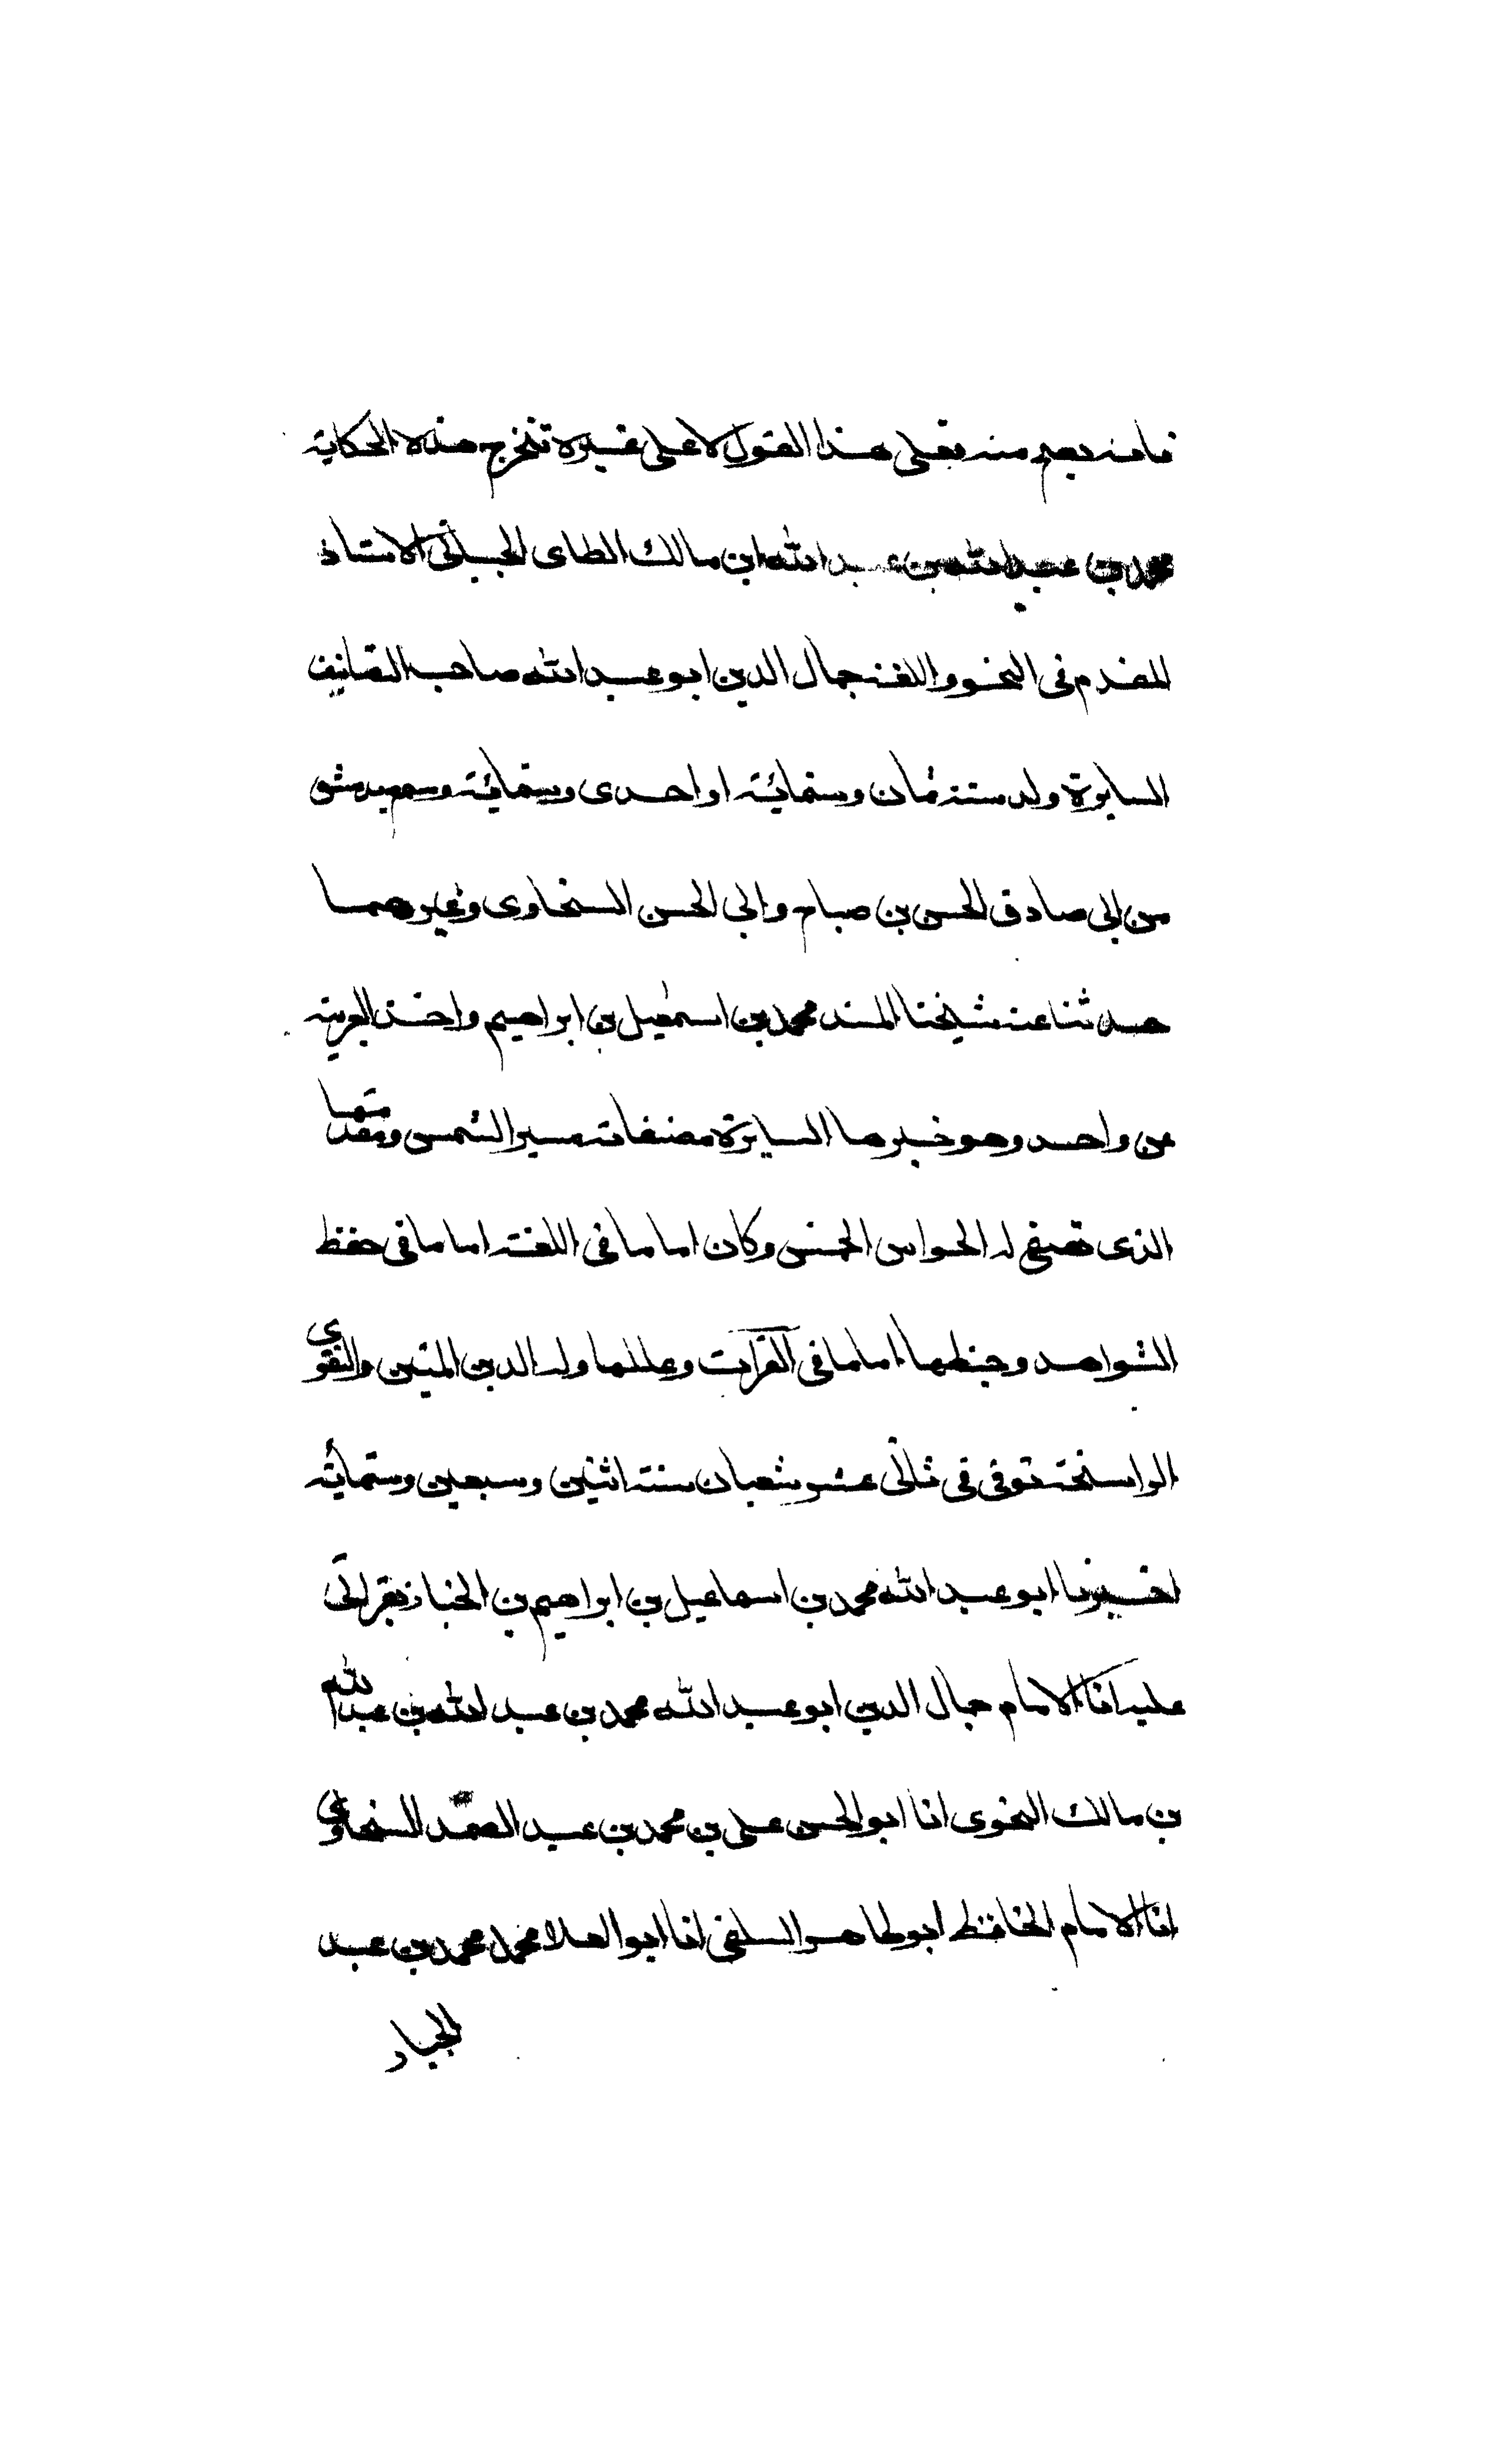 فانه يعم منه فعلى هذا القول لا على غيره تتخرج هذه الحكاية
محمد بن عبد الله بن عبد الله ابن مالك الطاى الجيانى الاستاذ
المقدم فى النحو واللغة جمال الدين ابو عبد الله صاحب التصانيف
السايرة ولد سنة ثمان وستمائة او احدى وستمائة وسمع بدمشق
من ابى صادق الحسن بن صباح وابى الحسن السخاوى وغيرهما
حدثنا عنه شيخنا المسند محمد بن اسمعيل بن ابراهيم واخذ العربية
عن واحد وهو خبرها السايرة مصنفاته مسير الشمس ومقدمها
الذى تصغى له الحواس الخمس وكان اماما فى اللغة اماما فى حفظ
الشواهد وضبطها اماما فى القرآت وعللها وله الدين المتين والتقوى
الراسخة توفى فى ثانى عشر شعبان سنة اثنين وسبعين وستمائة
اخبرنا ابو عبد الله محمد بن اسماعيل بن ابراهيم بن الخباز بقراتى
عليه انا الامام جمال الدين ابو عبد الله محمد بن عبد الله بن عبد الله
بن مالك النحوى انا ابو الحسن على بن محمد بن عبد الصمد السخاوى
انا الامام الحافظ ابو طاهر السلفى انا ابو العلا محمد محمد بن عبد
الجبار